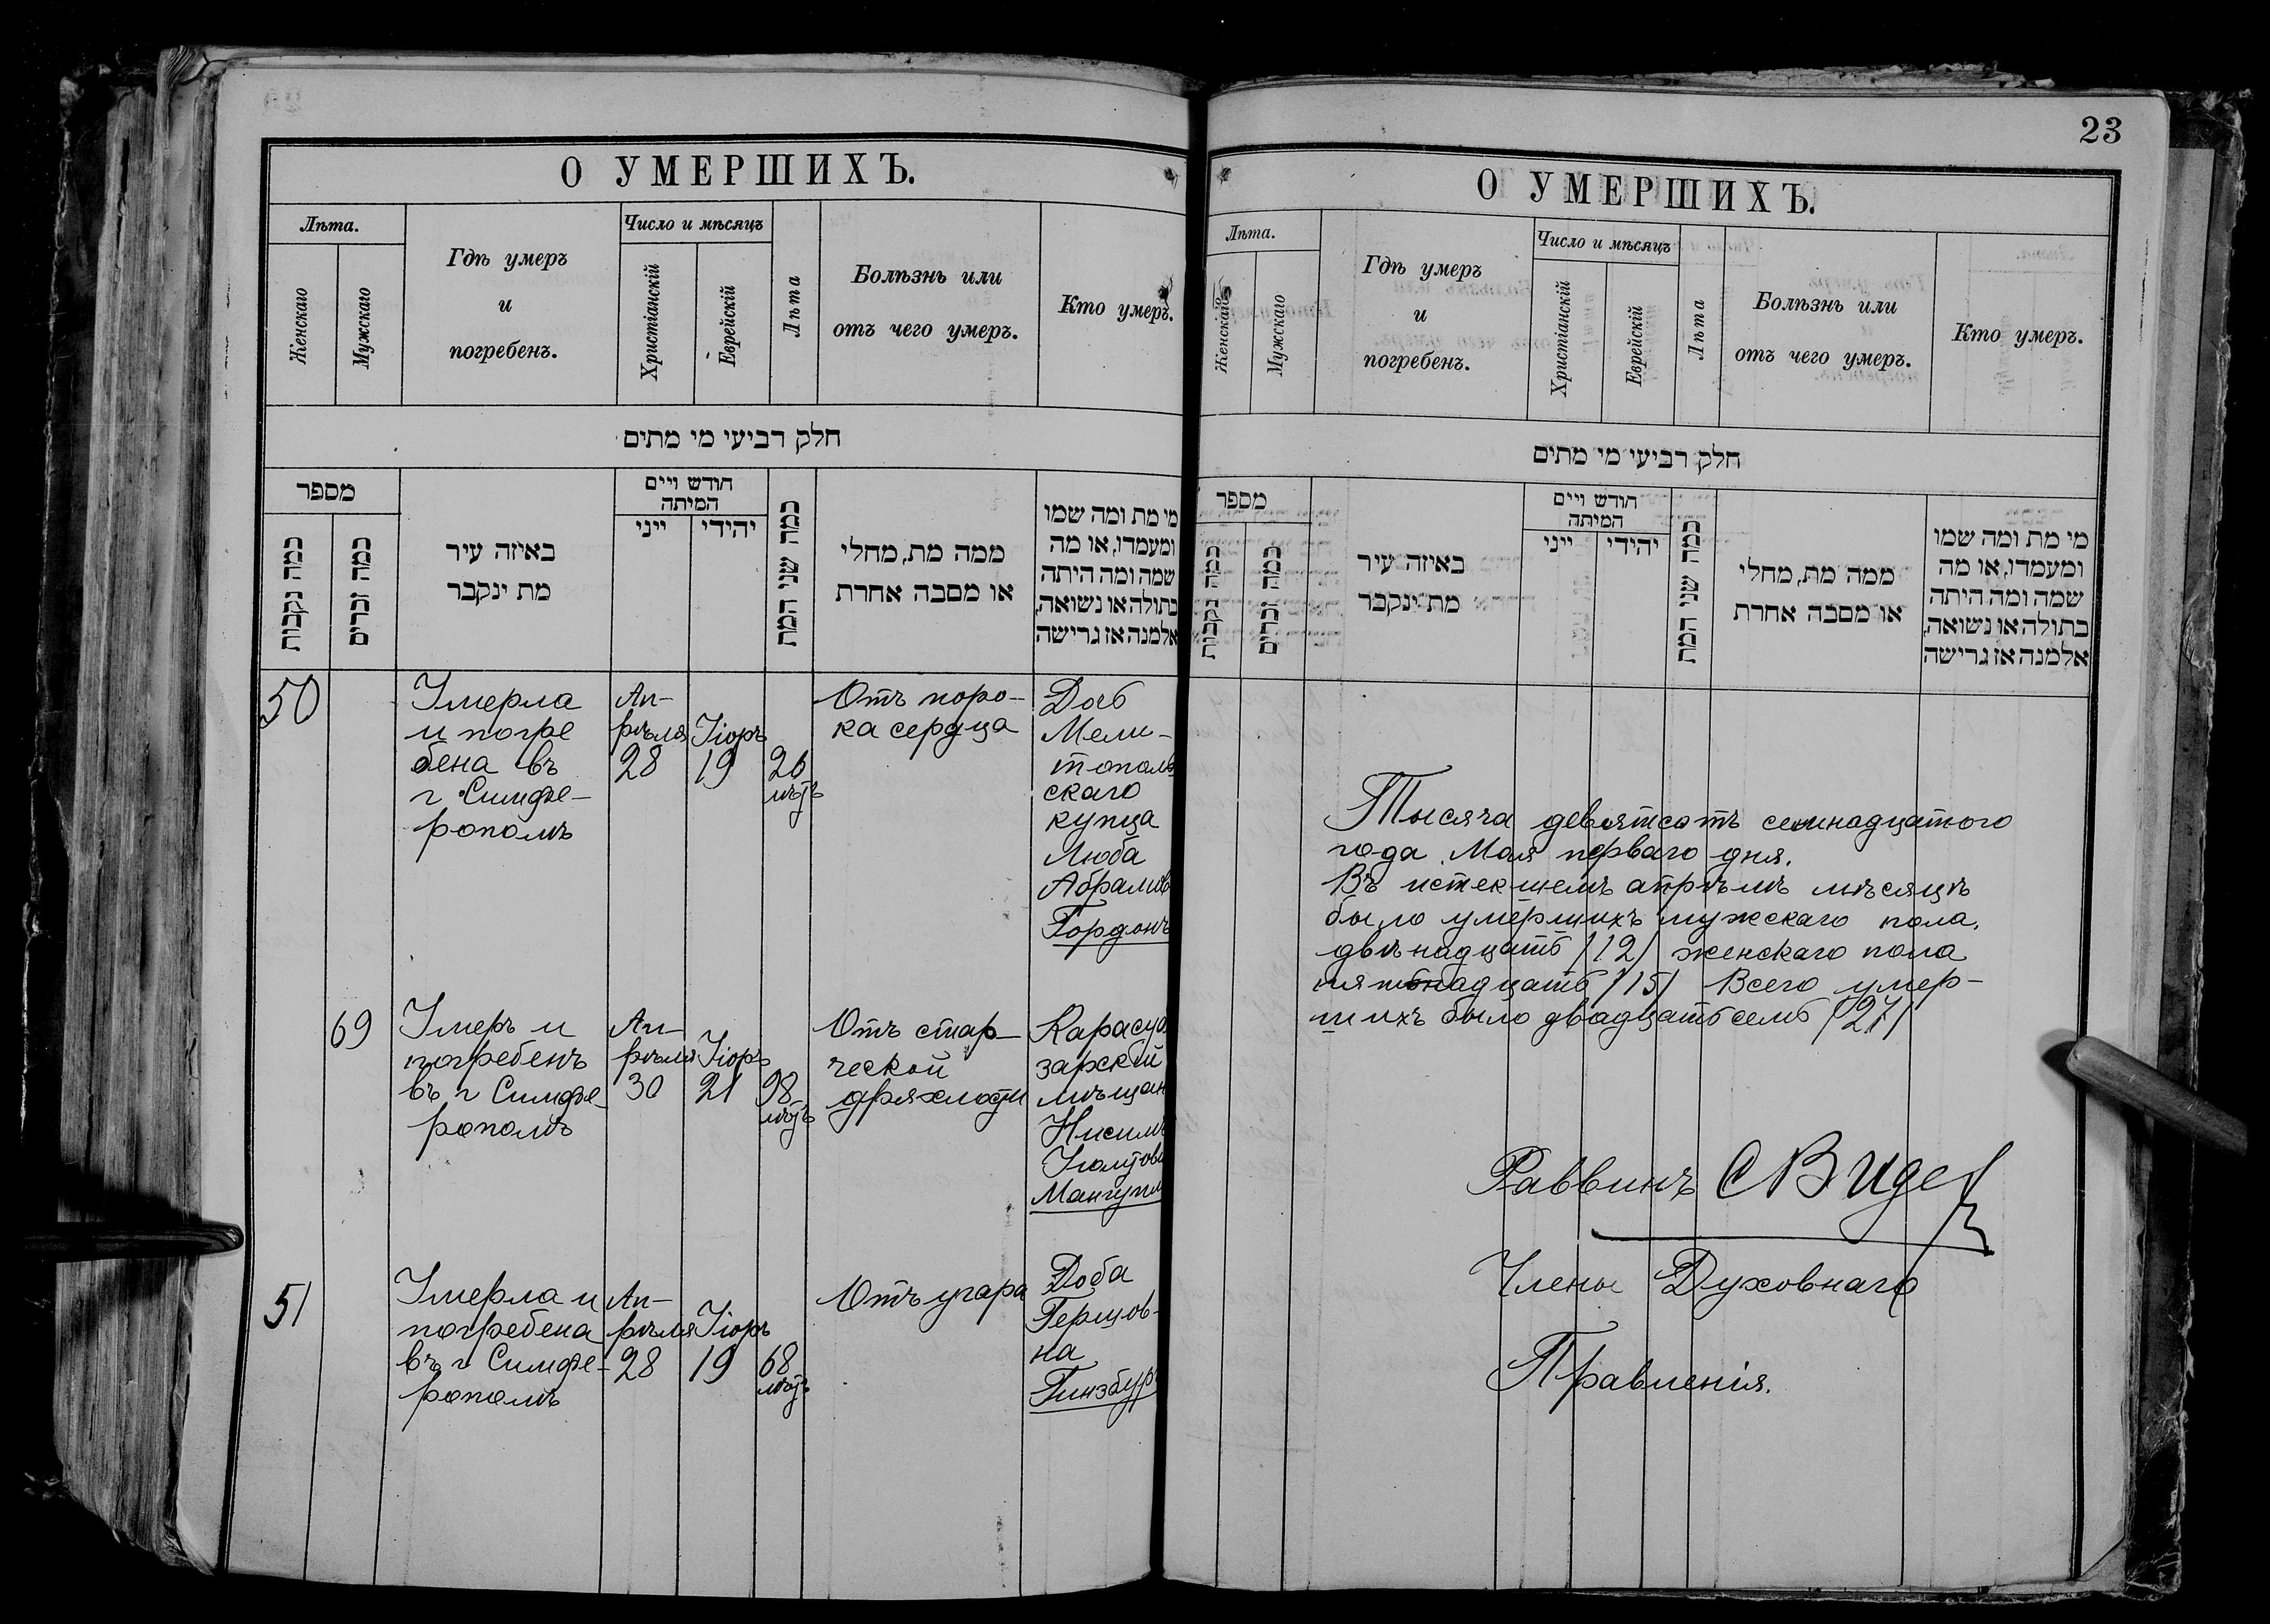 О УМЕРШИХЪ.
Лѣта.
Женскаго
Мужскаго
Гдѣ умеръ
и
погребенъ.
Число и мѣсяцъ
Христіанскій
Еврейскій
Лѣта
Болѣзнь или
отъ чего умеръ.
Кто умеръ.
חלק רביעי מי מתים
מספר
כמה נקבות
כמה זכרים
באיזה עיר
מת ינקבר
חודש ויים
המיתה
ייני
יהידי
כמה שני המת
ממה מת, מחלי
או מסבה אחרת
מי מת ומה שמו
ומעמדו, או מה
שמה ומה היתה
בתולה או נשואה,
אלמנה אז גרישה
50
Умерла
и погре
бена въ
г Симфе-
рополѣ
Ап-
рѣля
28
Іюръ
19
26
лѣтъ
Отъ поро-
ка сердца
Дочь
Мели-
тополь
скаго
купца
Люба
Абрамов
Гордонъ
69
Умеръ и
погребенъ
въ г Симфе-
рополѣ
Ап-
рѣля
30
Іюръ
21
98
лѣтъ
Отъ стар-
ческой
дряхлости
Карасуб
зарскій
мѣщан
Нисимъ
Мангупл
51
Умерла и
погребена
въ г Симфе-
рополѣ
Ап-
рѣля
28
Іюръ
19
68
лѣтъ
Отъ угара
Доба
Герцов-
на
Гинзбург
23
О УМЕРШИХЪ.
Лѣта.
Женскаго
Мужскаго
Гдѣ умеръ
и
погребенъ.
Число и мѣсяцъ
Христіанскій
Еврейскій
Лѣта
Болѣзнь или
отъ чего умеръ.
Кто умеръ.
חלק רביעי מי מתים
מספר
כמה נקבות
כמה זכרים
באיזה עיר
מת ינקבר
חודש ויים
המיתה
ייני
יהידי
כמה שני המת
ממה מת, מחלי
או מסבה אחרת
מי מת ומה שמו
ומעמדו, או מה
שמה ומה היתה
בתולה או נשואה,
אלמנה אז גרישה
Тысяча девятсотъ семнадцатого
года Мая перваго дня.
Въ истекшемъ апрѣлѣ мѣсяцѣ
было умершихъ мужскаго пола
двѣнадцать /12/ женскаго пола
пятьнадцать /15/ Всего умер-
шихъ было двадцать семь /27/
Раввинъ
Члены Духовнаго
Правленія.